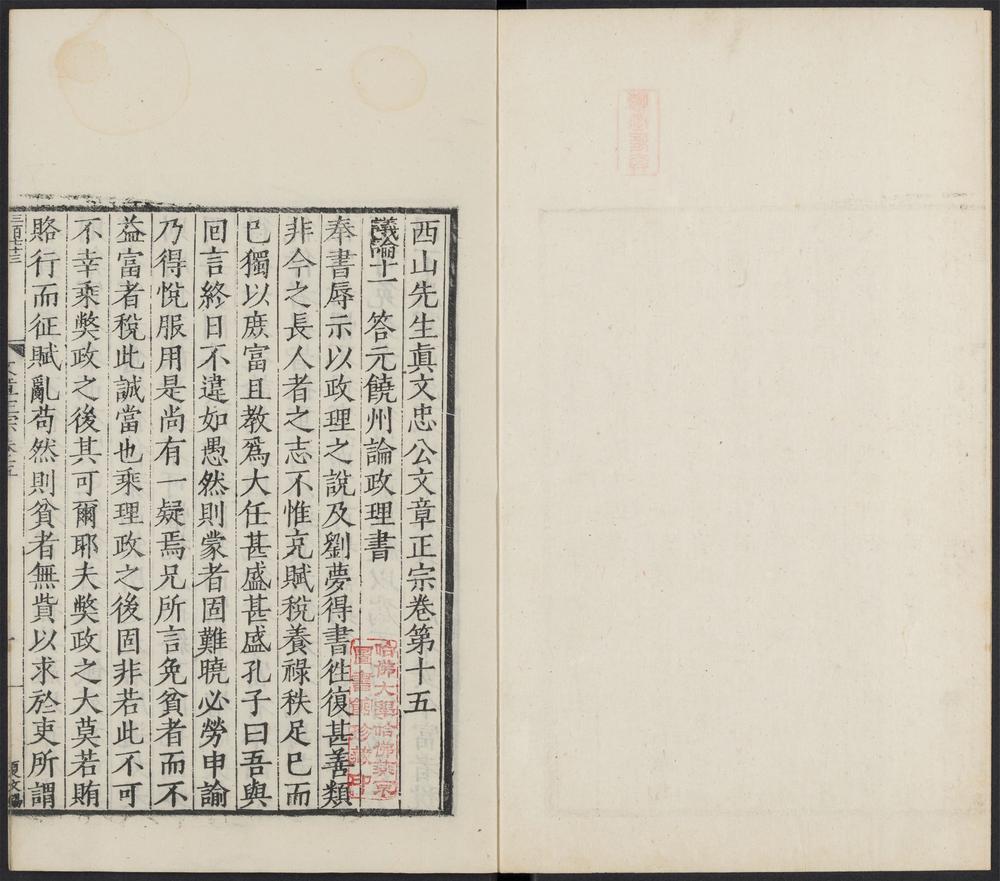 西山先生眞文忠公文章正宗卷第十五
議論十一 答元饒州論政理書
奉書辱示以政理之說及劉夢得書徃復甚善類
非今之長人者之志不惟充賦稅養祿秩足已而
已獨以庻富且教爲大任甚盛甚盛孔子曰吾與
囘言終日不違如愚然則蒙者固難曉必勞申諭
乃得恱服用是尚有一疑焉兄所言免貧者而不
益富者稅此誠當也乘理政之後固非若此不可
不幸乘弊政之後其可爾耶夫弊政之大莫若賄
賂行而征賦亂苟然則貧者無貲以求於吏所謂
文章正宗卷十五
哈佛大學哈佛燕京
圖書館珍藏印